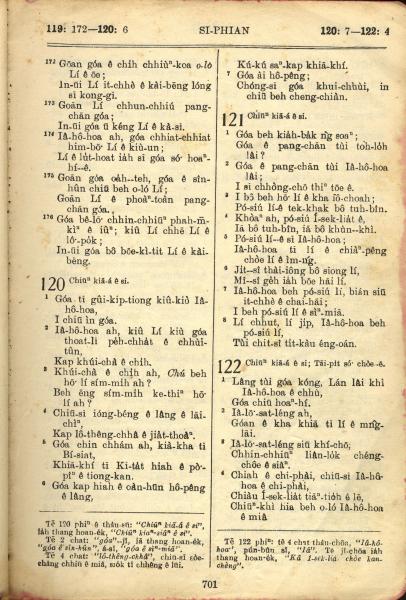 119: 172—120: 6
SI-PHIAN
120: 7—122: 4
172 Goān góa ê chi̍h chhiùⁿ-koa o-ló
Lí ê ōe;
In-ūi Lí it-chhè ê kài-bēng lóng
sī kong-gī.
173 Goān Lí chhun-chhiú pang-
chān góa;
In-ūi góa ū kéng Lí ê kà-sī.
174 Iâ-hô-hoa ah, góa chhiat-chhiat
him-bō͘ Lí ê kiù-un;
Lí ê lu̍t-hoat iáh sī góa só͘ hoaⁿ-
hí--ê.
175 Goān góa oáh--teh, góa ê sîn-
hûn chiū beh o-ló Lí;
Goān Lí ê phoàⁿ-toàn pang-
chān góa.
176 Góa bê-lō͘ chhin-chhiūⁿ phah-m̄-
kìⁿ ê iûⁿ; kiû Lí chhē Lí ê
lô͘-po̍k;
In-ūi góa bô bōe-kì-tit Lí ê kài-
bēng.
120 Chiūⁿ kiā-á ê si.
1 Góa tī gûi-kip-tiong kiû-kiò Iâ-
hô-hoa,
I chiū ìn góa.
2 Iâ-hô-hoa ah, kiû Lí kiù góa
thoat-lī pe̍h-chha̍t ê chhùi-
tûn,
Kap khúi-chà ê chi̍h.
3 Khúi-chà ê chi̍h ah, Chú beh
hō͘ lí sím-mih ah?
Beh ēng sím-mih ke-thiⁿ hō͘
lí ah?
4 Chiū-sī ióng-béng ê lâng ê lāi-
chìⁿ,
Kap lô-thêng-chhâ ê jia̍t-thoàⁿ.
5 Góa chin chhám ah, kià-kha tī
Bí-siat,
Khiā-khí tī Ki-ta̍t hiah ê pò͘-
pîⁿ ê tiong-kan.
6 Góa kap hiah ê oàn-hūn hô-pêng
ê lâng,
Kú-kú saⁿ-kap khiā-khí.
7 Góa ài hô-pêng;
Chóng-sī góa khui-chhùi, in
chiū beh cheng-chiàn.
121 Chiūⁿ kiā-á ê si.
1 Góa beh kia̍h-ba̍k ǹg soaⁿ;
Góa ê pang-chān tùi toh-lo̍h
lâi?
2 Góa ê pang-chān tùi Iâ-hô-hoa
lâi;
I sī chhòng-chō thiⁿ tōe ê.
3 I bô beh hō͘ lí ê kha iô-choah;
Pó-siú lí-ê tek-khak bô tuh-bîn.
4 Khòaⁿ ah, pó-siú Í-sek-lia̍t ê,
Iā bô tuh-bîn, iā bô khùn--khì.
5 Pó-siú lí--ê sī Iâ-hô-hoa;
Iâ-hô-hoa tī lí ê chiàⁿ-pêng
chòe lí ê ìm-n̂g.
6 Ji̍t--sî thài-iông bô siong lí,
Mî--sî ge̍h iáh bōe hāi lí.
7 Iâ-hô-hoa beh pó-siú lí, bián siū
it-chhè ê chai-hāi;
I beh pó-siú lí ê sìⁿ-miā.
8 Lí chhut, lí ji̍p, Iâ-hô-hoa beh
pó-siú lí,
Tùi chit-sî tit-kàu éng-oán.
122 Chiūⁿ kiā-á ê si; Tāi-pit só͘ chòe-ê.
1 Lâng tùi góa kóng, Lán lâi khì
Iâ-hô-hoa ê chhù,
Góa chiū hoaⁿ-hí.
2 Iâ-lō͘-sat-léng ah,
Goán ê kha khiā tī lí ê mn̂g-
lāi.
3 Iâ-lō͘-sat-léng siū khí-chō;
Chhin-chhiūⁿ liân-lo̍k chéng-
chōe ê siâⁿ.
4 Chiah ê chi-phài, chiū-sī Iâ-hô-
hoa ê chi-phài,
Chiàu Í-sek-lia̍t tiāⁿ-tio̍h ê lē,
Chiūⁿ-khì hia beh o-ló Iâ-hô-hoa
ê miâ.
Tē 120 phiⁿ ê thâu-sū: "Chiūⁿ kiā-á ê si",
iáh thang hoan-e̍k, "Chiūⁿ kiaⁿ-siâⁿ ê si".
Tē 2 chat: "góa"--jī, iā thang hoan-e̍k,
"góa ê sîn-hûn", á-sī, "góa ê sìⁿ-miā".
Tē 4 chat: "lô-thêng-chhâ", chiū-sī côe-
chāng chhiū ê miâ, so̍k tī chhêng ê lūi.
Tē 122 phiⁿ: tē 4 chat thâu-chōa, "Iâ-hô-
hoa", pún-bûn sī, "Iâ". Tē jī-chōa iáh
thang hoan-e̍k, "Kā Í-sek-lia̍t chòe kan-
chèng".
701